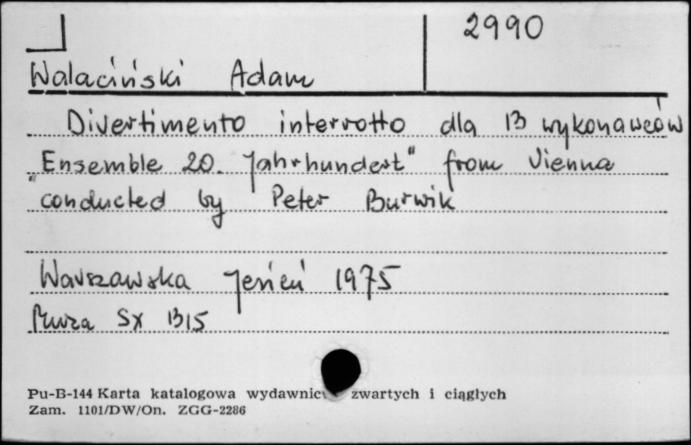 2990
Walaciński Adam
Divertimento interrotto dla 13 wykonawców
"Ensemble 20. Jahrhundert" from Vienna
conducted by Peter Burwik
Warszawska Jesień 1975
Muza SX 1315
Pu-B-144 Karta katalogowa wydawnic zwartych i ciągłych
Zam. 1101/DW/On. ZGG-2286